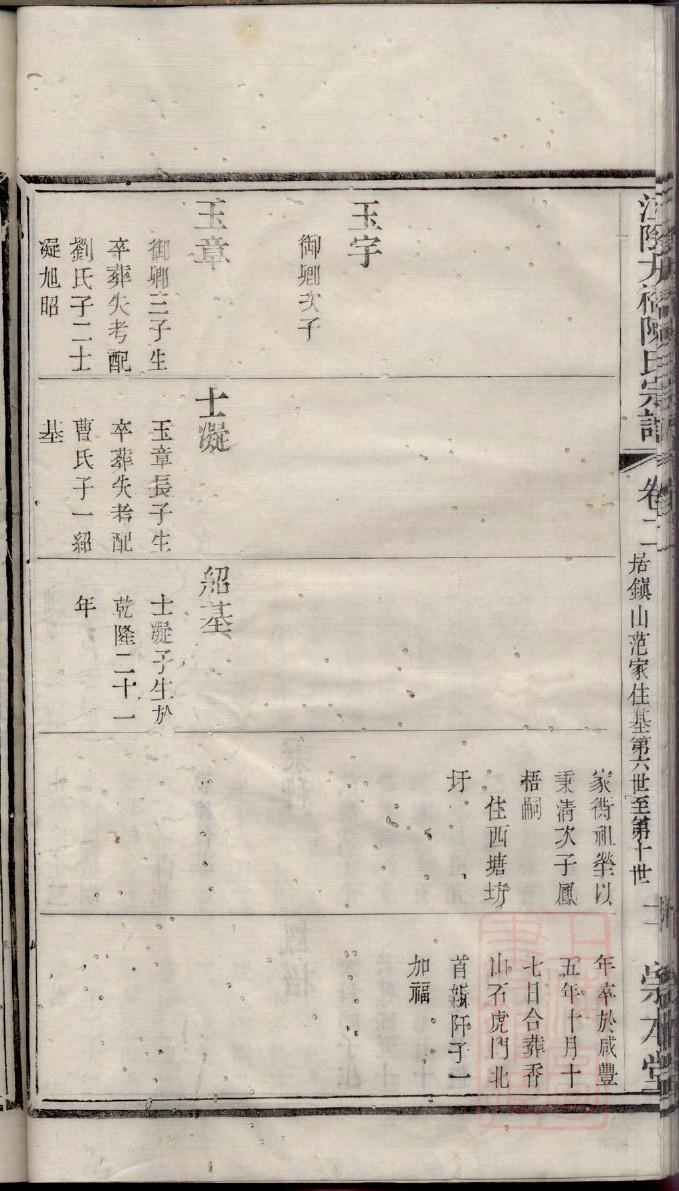 陳氏宗譜
卷二
居鎮山范家住基第六世至第十世
宗本堂
玉字
御卿次子
玉章
御卿三子生
卒葬失考配
劉氏子二士
凝旭昭
士凝
玉章長子生
卒葬失考配
曹氏子一紹
基
紹基
士凝子生於
乾隆二十一
年
家衖祖塋以
秉清次子鳳
梧嗣
住西塘坊
圩
年卒於咸豐
五年十月十
七日合葬香
山石虎門北
首新阡子一
加福